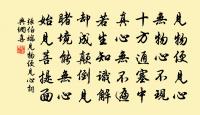 見物便見心
無物心不現
十方通塞中
真心無不遍
若生知識解
却成顛倒見
睹境能無心
始見菩提面
張伯端見物便見心